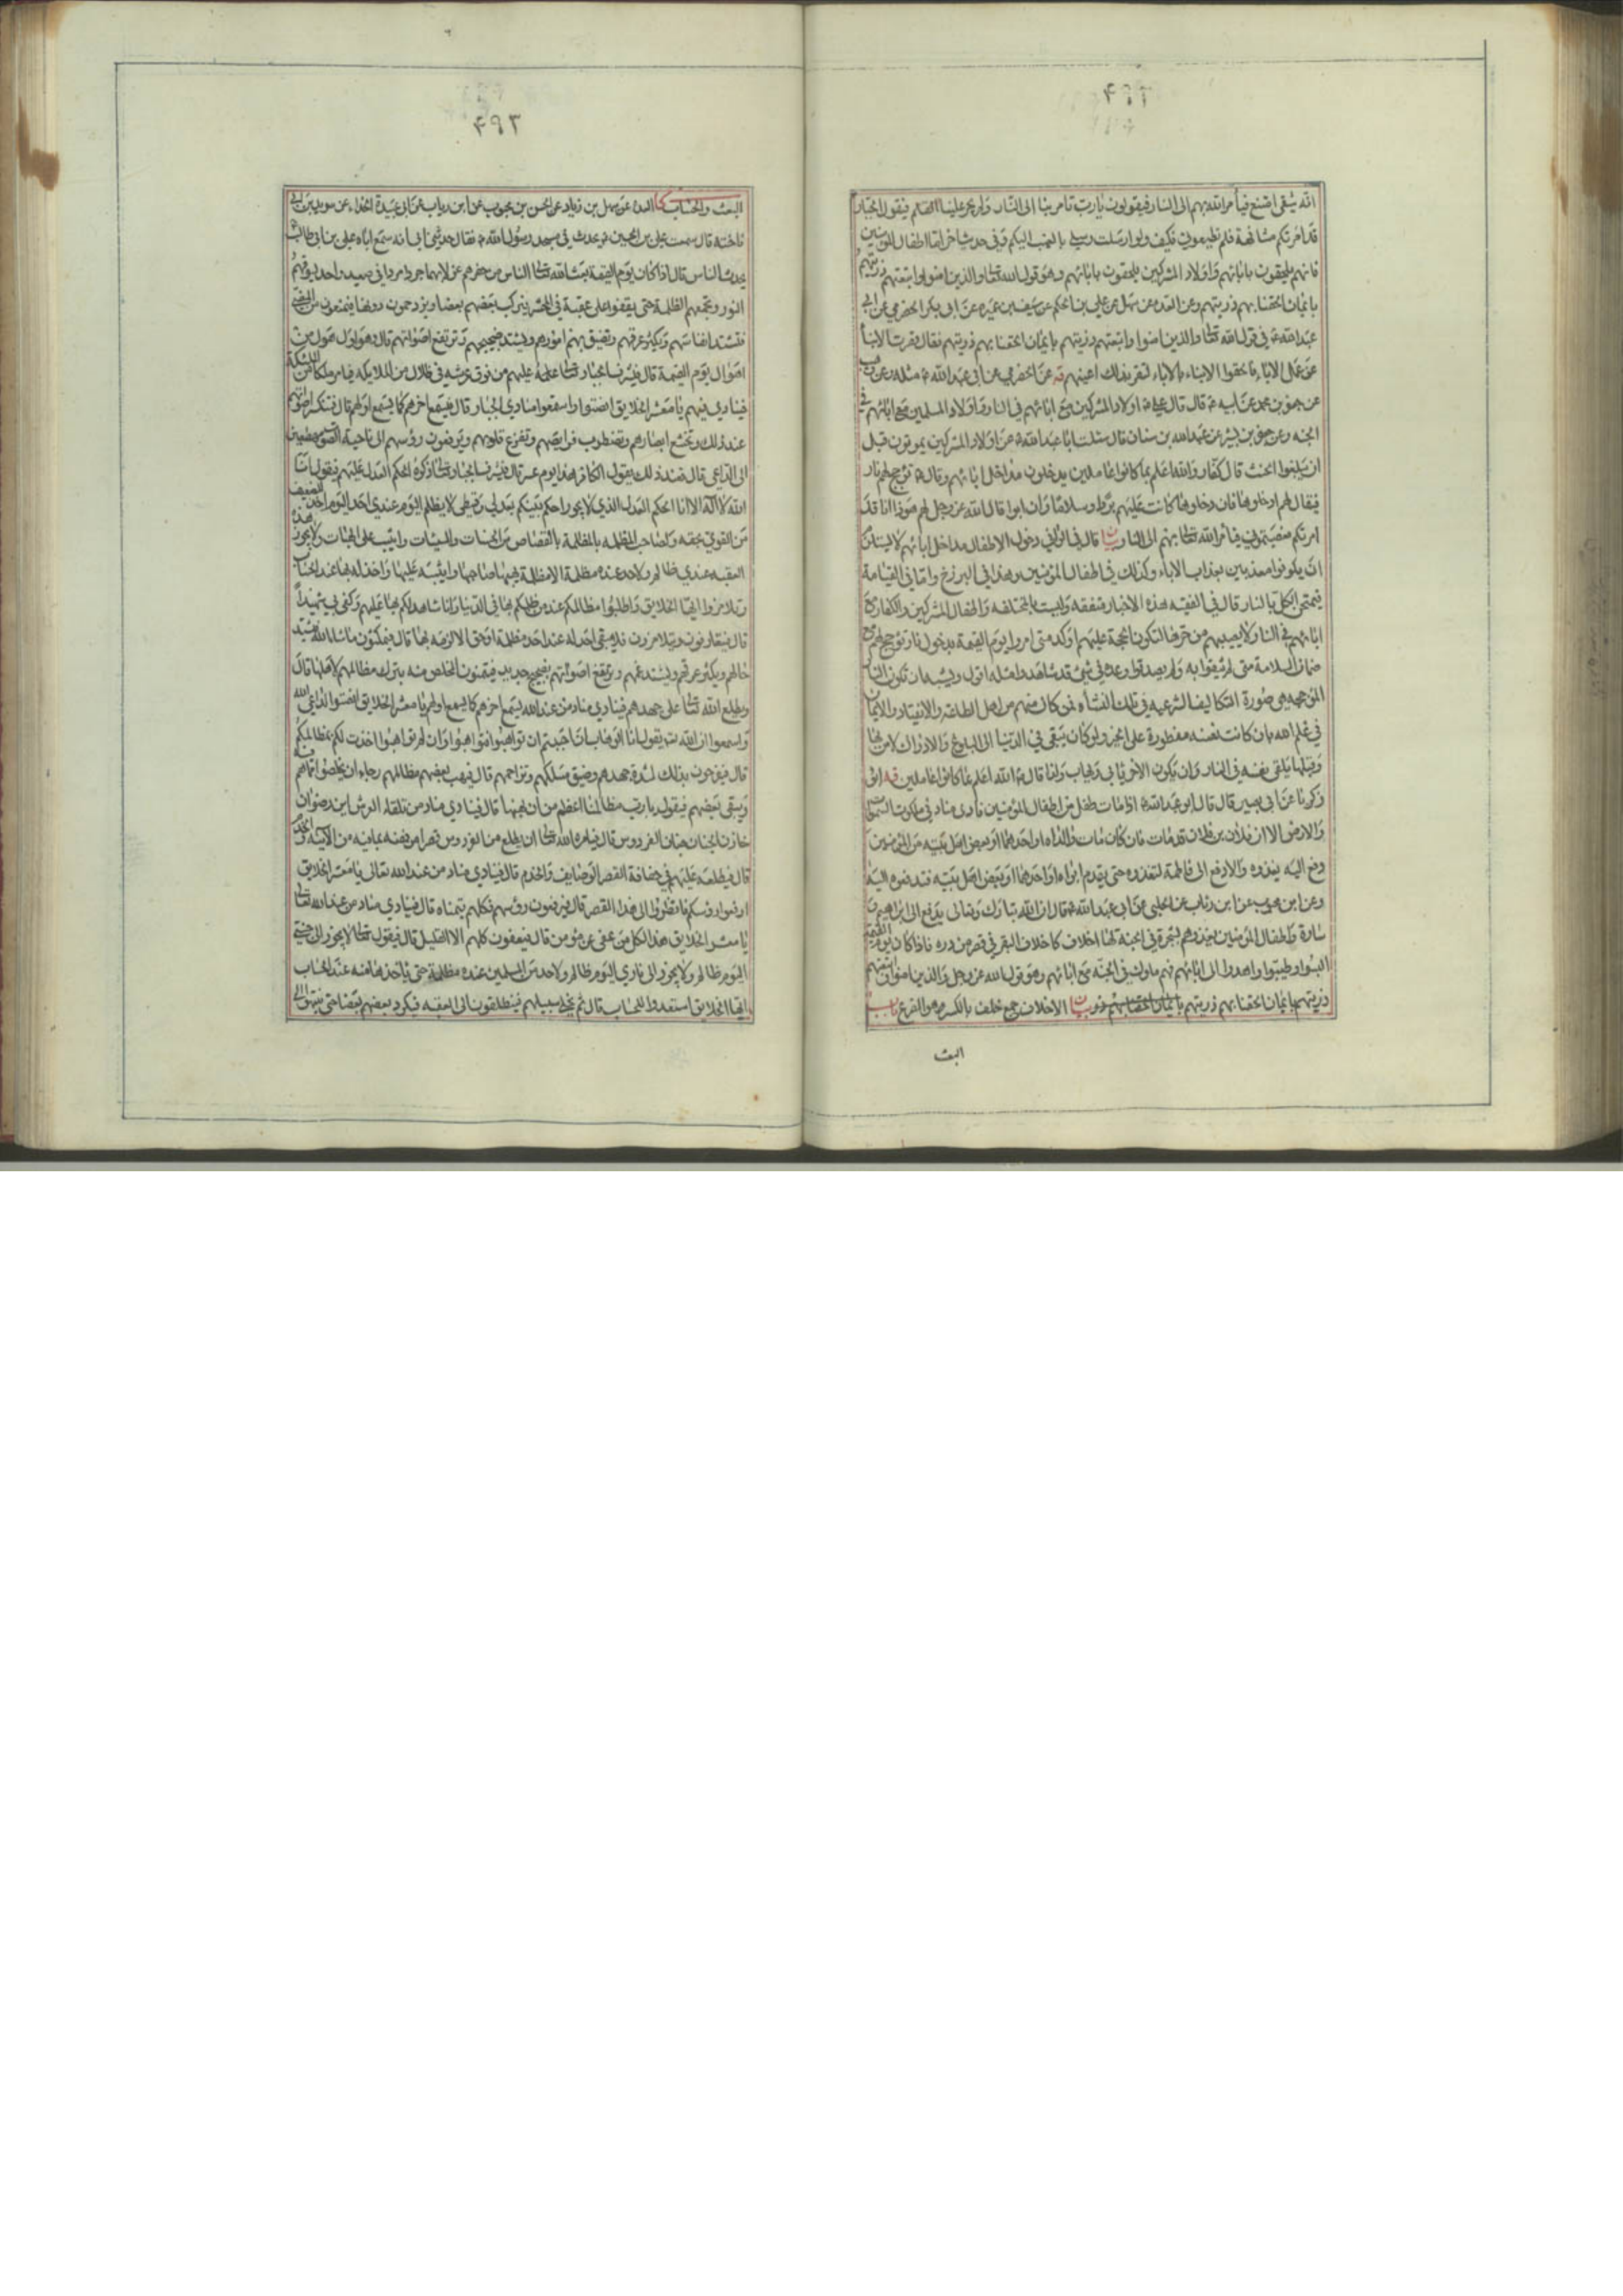 ۴۹۲
انه شقى امتنع فيأمر الله بهم الى النار فيقولون يا رب تأمر بنا الى النار ولم يجر علينا القلم فيقول الجبار
قد امرتكم مشافهة فلم تطيعونى فكيف ولو ارسلت رسلى بالغيب اليكم وفى حديث اخر اما اطفال المؤمنين
فانهم يلحقون بابائهم واولاد المشركين يلحقون بابائهم وهو قول الله تعالى والذين امنوا واتبعتهم ذريتهم
بايمان الحقنا بهم ذريتهم وعن العدة عن سهل عن على بن الحكم عن سيف بن عميره عن ابى بكر الحضرمى عن ابى
عبد الله ع فى قول الله تعالى والذين امنوا واتبعتهم ذريتهم بايمان الحقنا بهم ذريتهم فقال قصرت الابناء
عن عمل الاباء فالحقوا الابناء بالاباء لتقر بذلك اعينهم عن الحضرمى عن ابى عبد الله ع مثله وعن
عن جعفر بن محمد عن ابيه ع قال قال على ع اولاد المشركين مع ابائهم فى النار واولاد المسلمين مع ابائهم فى
الجنه وعن جعفر بن بشير عن عبد الله بن سنان قال سئلت ابا عبد الله ع عن اولاد المشركين يموتون قبل
ان يبلغوا الحنث قال كفار والله اعلم بما كانوا عاملين يدخلون مداخل ابائهم وقال ع تؤجج لهم نار
فيقال لهم ادخلوها فان دخلوها كانت عليهم بردا وسلاما وان ابوا قال الله عز وجل لهم هوذا انا قد
امرتكم فعصيتمونى فيأمر الله تعالى بهم الى النار قال فى الوافى دخول الاطفال مداخل ابائهم لا يستلزم
ان يكونوا معذبين بعذاب الاباء وكذلك فى اطفال المؤمنين وهذا فى البرزخ واما فى القيامة
فيمتحن الكل بالنار قال فى الفقيه هذه الاخبار متفقه وليست بمختلفه واطفال المشركين والكفار مع
ابائهم فى النار لا يصيبهم من حرها لتكون الحجة عليهم اوكد متى امروا يوم القيمة بدخول نار تؤجج لهم مع
ضمان السلامة متى لم يثقوا به ولم يصدقوا وعده فى شئ قد شاهدوا مثله اقول ويشبه ان تكون النار
المؤججه هى صورة التكاليف الشرعيه فى تلك النشأه فمن كان منهم من اهل الطاعة والانقياد والايمان
فى علم الله بان كانت نفسه مفطورة على الخير ولو كان يبقى فى الدنيا الى البلوغ والادراك لامن بها
وقبلها يلقى نفسه فى النار وان يكون الاخر يابى ولذا قال ع الله اعلم بما كانوا عاملين
زكريا عن ابى بصير قال قال ابو عبد الله ع اذا مات طفل من اطفال المؤمنين نادى مناد فى ملكوت السموات
والارض الا ان فلان بن فلان قد مات فان كان مات والداه او احدهما او بعض اهل بيته من المؤمنين
دفع اليه يغذوه والا دفع الى فاطمة تغذوه حتى يقدم ابواه او احدهما او بعض اهل بيته فتدفعه اليه
وعن ابن محبوب عن ابن رئاب عن الحلبى عن ابى عبد الله ع قال ان الله تبارك وتعالى يدفع الى ابراهيم و
سارة واطفال المؤمنين يغذوهم بشجرة فى الجنة لها اخلاف كاخلاف البقر فى قصر من دره فاذا كان يوم القيمة
البسوا وطيبوا واهدوا الى ابائهم فهم ملوك فى الجنة مع ابائهم وهو قول الله عز وجل والذين امنوا واتبعتهم
ذريتهم بايمان الحقنا بهم ذريتهم الاخلاف جمع خلف بالكسر وهو الضرع باب
البعث
۴۹۳
البعث والحساب العدة عن سهل بن زياد عن الحسن بن محبوب عن ابن رياب عن ابى عبيدة الحذاء عن ثوير بن ابى
فاخته قال سمعت على بن الحسين ع يحدث فى مسجد رسول الله ص فقال حدثنى ابى انه سمع اباه على بن ابى طالب
يحدث الناس قال اذا كان يوم القيمة بعث الله تعالى الناس من حفرهم عزلا بهما جردا مردا فى صعيد واحد يسوقهم
النور وتجمعهم الظلمة حتى يقفوا على عقبة فى المحشر فيركب بعضهم بعضا ويزدحمون دونها فيمنعون من المضى
فتشتد انفاسهم ويكثر عرقهم وتضيق بهم امورهم ويشتد ضجيجهم وترتفع اصواتهم قال وهو اول هول من
اهوال يوم القيمة قال فيشرف الجبار تعالى عليهم من فوق عرشه فى ظلال من الملايكه فيامر ملكا من الملئكة
فينادى فيهم يا معشر الخلايق انصتوا واستمعوا منادى الجبار قال فيسمع اخرهم كما يسمع اولهم قال فتنكسر اصواتهم
عند ذلك وتخشع ابصارهم وتضطرب فرايصهم وتفزع قلوبهم ويرفعون رؤسهم الى ناحية الصوت مهطعين
الى الداعى قال فعند ذلك يقول الكافر هذا يوم عسر قال فيشرف الجبار تعالى ذكره الحكم العدل عليهم فيقول انا
الله لا اله الا انا الحكم العدل الذى لا يجور احكم بينكم بعدلى وقسطى لا يظلم اليوم عندى احد اليوم اخذ للضعيف
من القوى بحقه ولصاحب المظلمه بالمظلمة بالقصاص من الحسنات والسيئات واثيب على الهبات ولا يجوز هذه
العقبه عندى ظالم ولاحد عنده مظلمة الا مظلمة يهبها صاحبها واثيبه عليها واخذ له بها عند الحساب
وتلازموا ايها الخلايق واطلبوا مظالمكم عند من ظلمكم بها فى الدنيا وانا شاهد لكم بها عليهم وكفى بى شهيدا
قال فيتعارفون ويتلازمون فلا يبقى احد له عند احد مظلمة او حق الا لزمه بها قال فيمكثون ما شاء الله فيشتد
حالهم ويكثر عرقهم ويشتد غمهم وترتفع اصواتهم بضجيج شديد فيتمنون المخلص منه بترك مظالمهم لاهلها قال
ويطلع الله تعالى على جهدهم فينادى مناد من عند الله يسمع اخرهم كما يسمع اولهم يا معشر الخلايق انصتوا لداعى الله
واسمعوا ان الله تعالى يقول انا الوهاب ان احببتم ان تواهبوا فتواهبوا وان لم تواهبوا اخذت لكم بمظالمكم
قال فيفرحون بذلك لشدة جهدهم وضيق مسلكهم وتزاحمهم قال فيهب بعضهم مظالمهم رجاء ان يخلصوا مما هم فيه
ويبقى بعضهم فيقول يا رب مظالمنا اعظم من ان نهبها قال فينادى مناد من تلقاء العرش اين رضوان
خازن الجنان جنان الفردوس قال فيامره الله تعالى ان يطلع من الفردوس قصرا من فضه بما فيه من الابنيه والخدم
قال فيطلعه عليهم فى حفافة القصر الوصايف والخدم قال فينادى مناد من عند الله تعالى يا معشر الخلايق
ارفعوا رؤسكم فانظروا الى هذا القصر قال فيرفعون رؤسهم فكلهم يتمناه قال فينادى مناد من عند الله تعالى
يا معشر الخلايق هذا لكل من عفى عن مؤمن قال فيعفون كلهم الا القليل قال فيقول تعالى لا يجوز الى جنتى
اليوم ظالم ولا يجوز الى نارى اليوم ظالم ولاحد من المسلمين عنده مظلمة حتى ياخذها منه عند الحساب
ايها الخلايق استعدوا للحساب قال ثم يخلى سبيلهم فينطلقون الى العقبه فيكرد بعضهم بعضا حتى ينتهوا الى